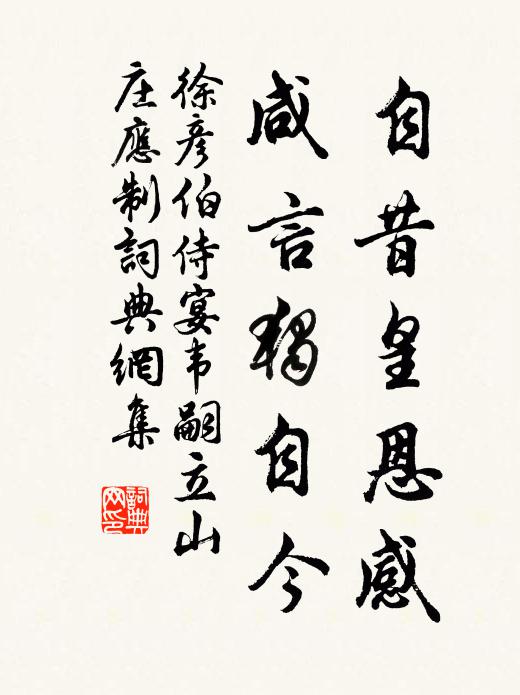 自昔皇恩感
咸言独自今
徐彦伯侍宴韦嗣立山
庄應制詞典網集
詞典
网印